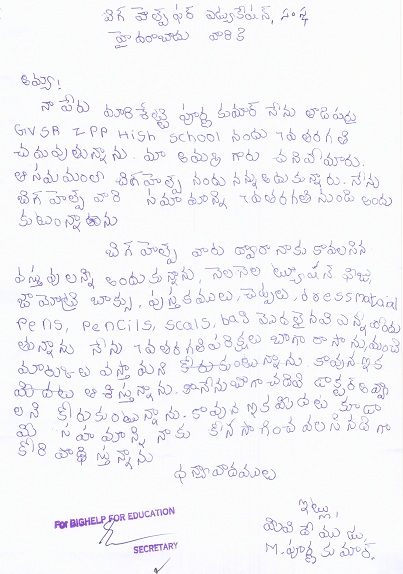 బిగ్ హెల్ప్ ఫర్ ఎడ్యుకేషన్, సంస్థ
హైదరాబాదు వారికి
అమ్మా!
నా పేరు మారిశెట్టి పూర్ణ కుమార్ నేను
GVSR ZPP High school నందు 7వతరగతి
చదువుతున్నాను. మా అమ్మ గారు చనిపోయారు.
ఆ సమయంలో బిగ్ హెల్ప్ నందు నన్ను ఆదుకున్నారు. నేను
బిగ్ హెల్ప్ వారి సహాయాన్ని 7వతరగతి నుండి అందు
కుంటున్నాను
బిగ్ హెల్ప్ వారు ద్వారా నాకు కావలసిన
వస్తువులన్ని అందుకున్నాను, నెలనెల ట్యూషన్ ఫీజు,
జామెట్రి బాక్సు, పుస్తకములు, చెప్పులు, dress material
Pens, Pencils, scals, bag మొదలైనవి ఎన్నో పొందు
తున్నాను నేను 7వతరగతి పరీక్షలు బాగా రాసాను, మంచి
మార్కులు వస్తాయని కోరుకుంటున్నాను కావున ఇక
మీదట ఆశిస్తున్నాను. నేను బాగా చదివి డాక్టర్ అవ్వా
లని కోరుకుంటున్నాను. కావున ఇక మీదట కూడా
మీ సహాయాన్ని నాకు కొనసాగించవలసినదిగా
కోరి ప్రార్థిస్తున్నాను
ధన్యవాదములు
ఇట్లు,
మీ విధేయుడు,
M. పూర్ణ కుమార్.
For BIGHELP FOR EDUCATION
SECRETARY